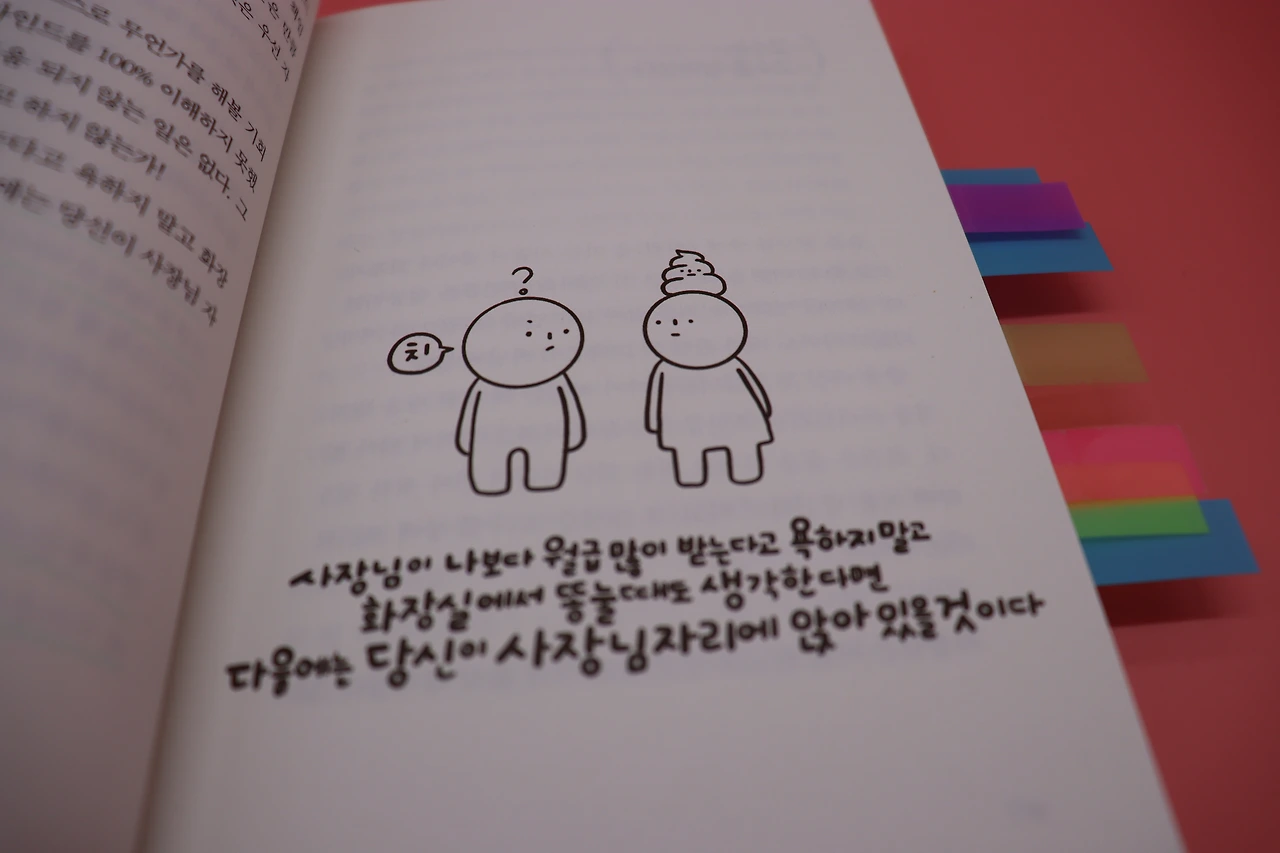 특징
은 만병
은 우선 자
스로 무언가를 해볼 기회
마인드를 100% 이해하지 못했
음 되지 않는 일은 없다. 그
고 하지 않는가!
다고 욕하지 말고 화장
에는 당신이 사장님 자
?
치
사장님이 나보다 월급 많이 받는다고 욕하지말고
화장실에서 똥눌때도 생각한다면
다음에는 당신이 사장님자리에 앉아 있을것이다